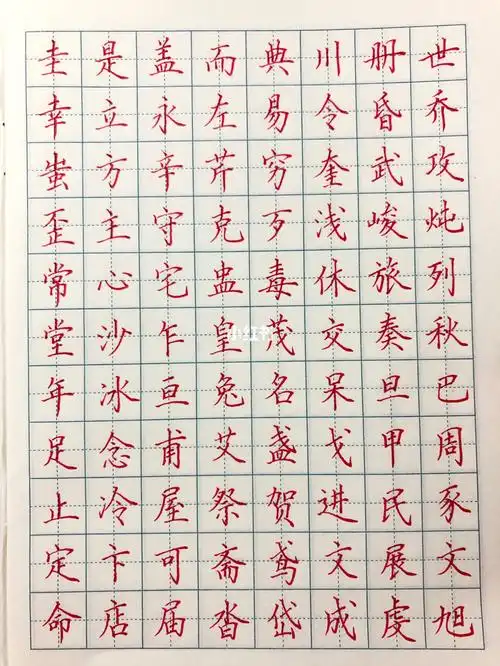 圭是盖而典川册世
幸立永左易令昏乔
蚩方辛芹穷奎武攻
歪主守克歹浅峻炖
常心宅蛊毒休旅列
堂沙乍皇茂交奏秋
年冰亘兔名呆旦巴
足念甫艾盏戈甲周
止冷屋祭贺进民豕
定卞可斋鸢文展文
命店届沓岱成虔旭
小红书